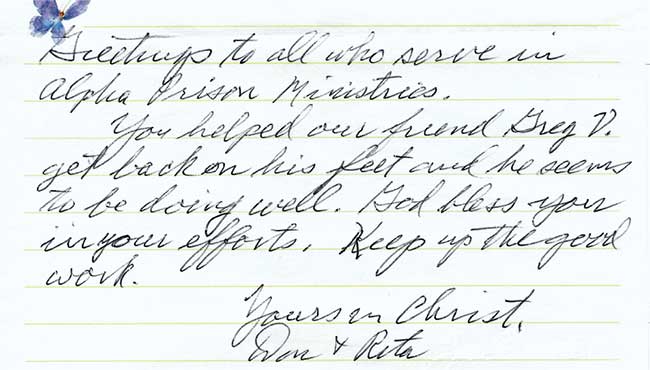 Greetings to all who serve in
Alpha Prison Ministries.
You helped our friend Greg V.
get back on his feet and he seems
to be doing well. God bless you
in your efforts. Keep up the good
work.
Yours in Christ,
Don + Rita